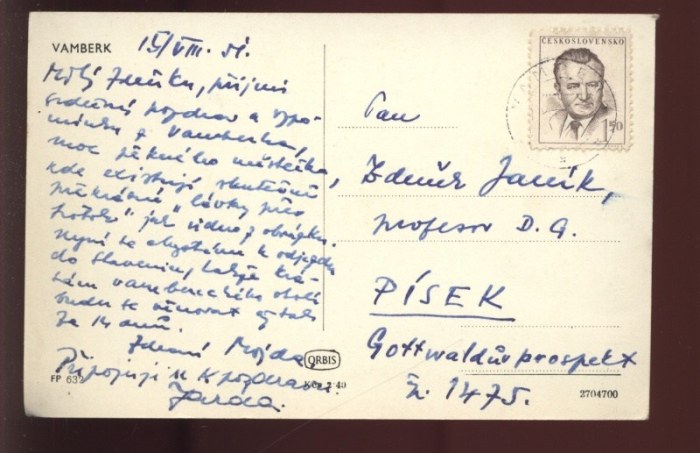 VAMBERK 15/VIII. 51.
Milý Zdeňku, přijmi
srdečný pozdrav a vzpo-
mínku z Vamberka,
moc pěkného městečka,
kde existují skutečně
překrásné „lávky přes
potok" jak vidno z obrázku.
Nyní se chystám k odjezdu
do Slovenin, takže krá-
sám vambereckého okolí
budu se věnovat až tak
za 14 dnů.
Zdraví Mojda
Připojuji se k pozdravu
Jarda.
FP 639
ORBIS
Kčs 1·40
ČESKOSLOVENSKO
1.50
VAMBERK
Pan
Zdeněk Janík,
profesor D. G.
PÍSEK
Gottwaldův prospekt
č. 1475.
2704700